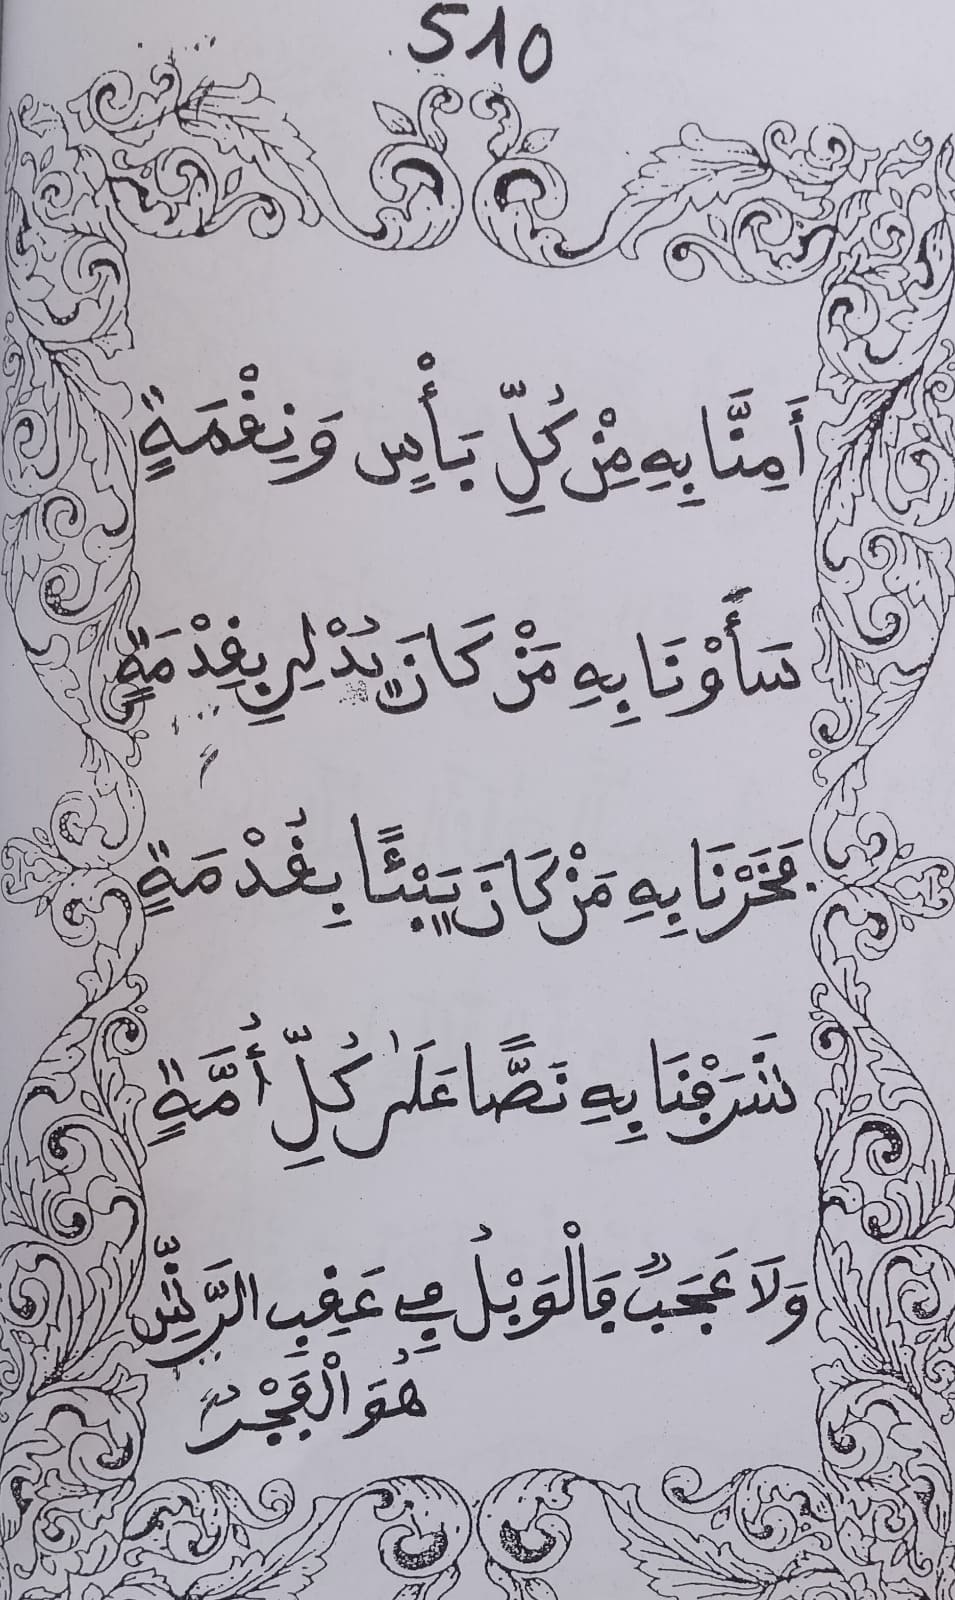 510
أَمِنَّا بِهِ مِنْ كُلِّ بَأْسٍ وَنِقْمَةٍ
سَأَوْنَا بِهِ مَنْ كَانَ يُدْلِي بِقِدْمَةٍ
فَخَرْنَا بِهِ مَنْ كَانَ يَبْئًا بِقُدْمَةٍ
شَرَفْنَا بِهِ نَصًّا عَلَى كُلِّ أُمَّةٍ
وَلَا عَجَبٌ فَالْوَبْلُ فِي عَقِبِ الرَّشِّ
هُوَ الْفَجْرُ